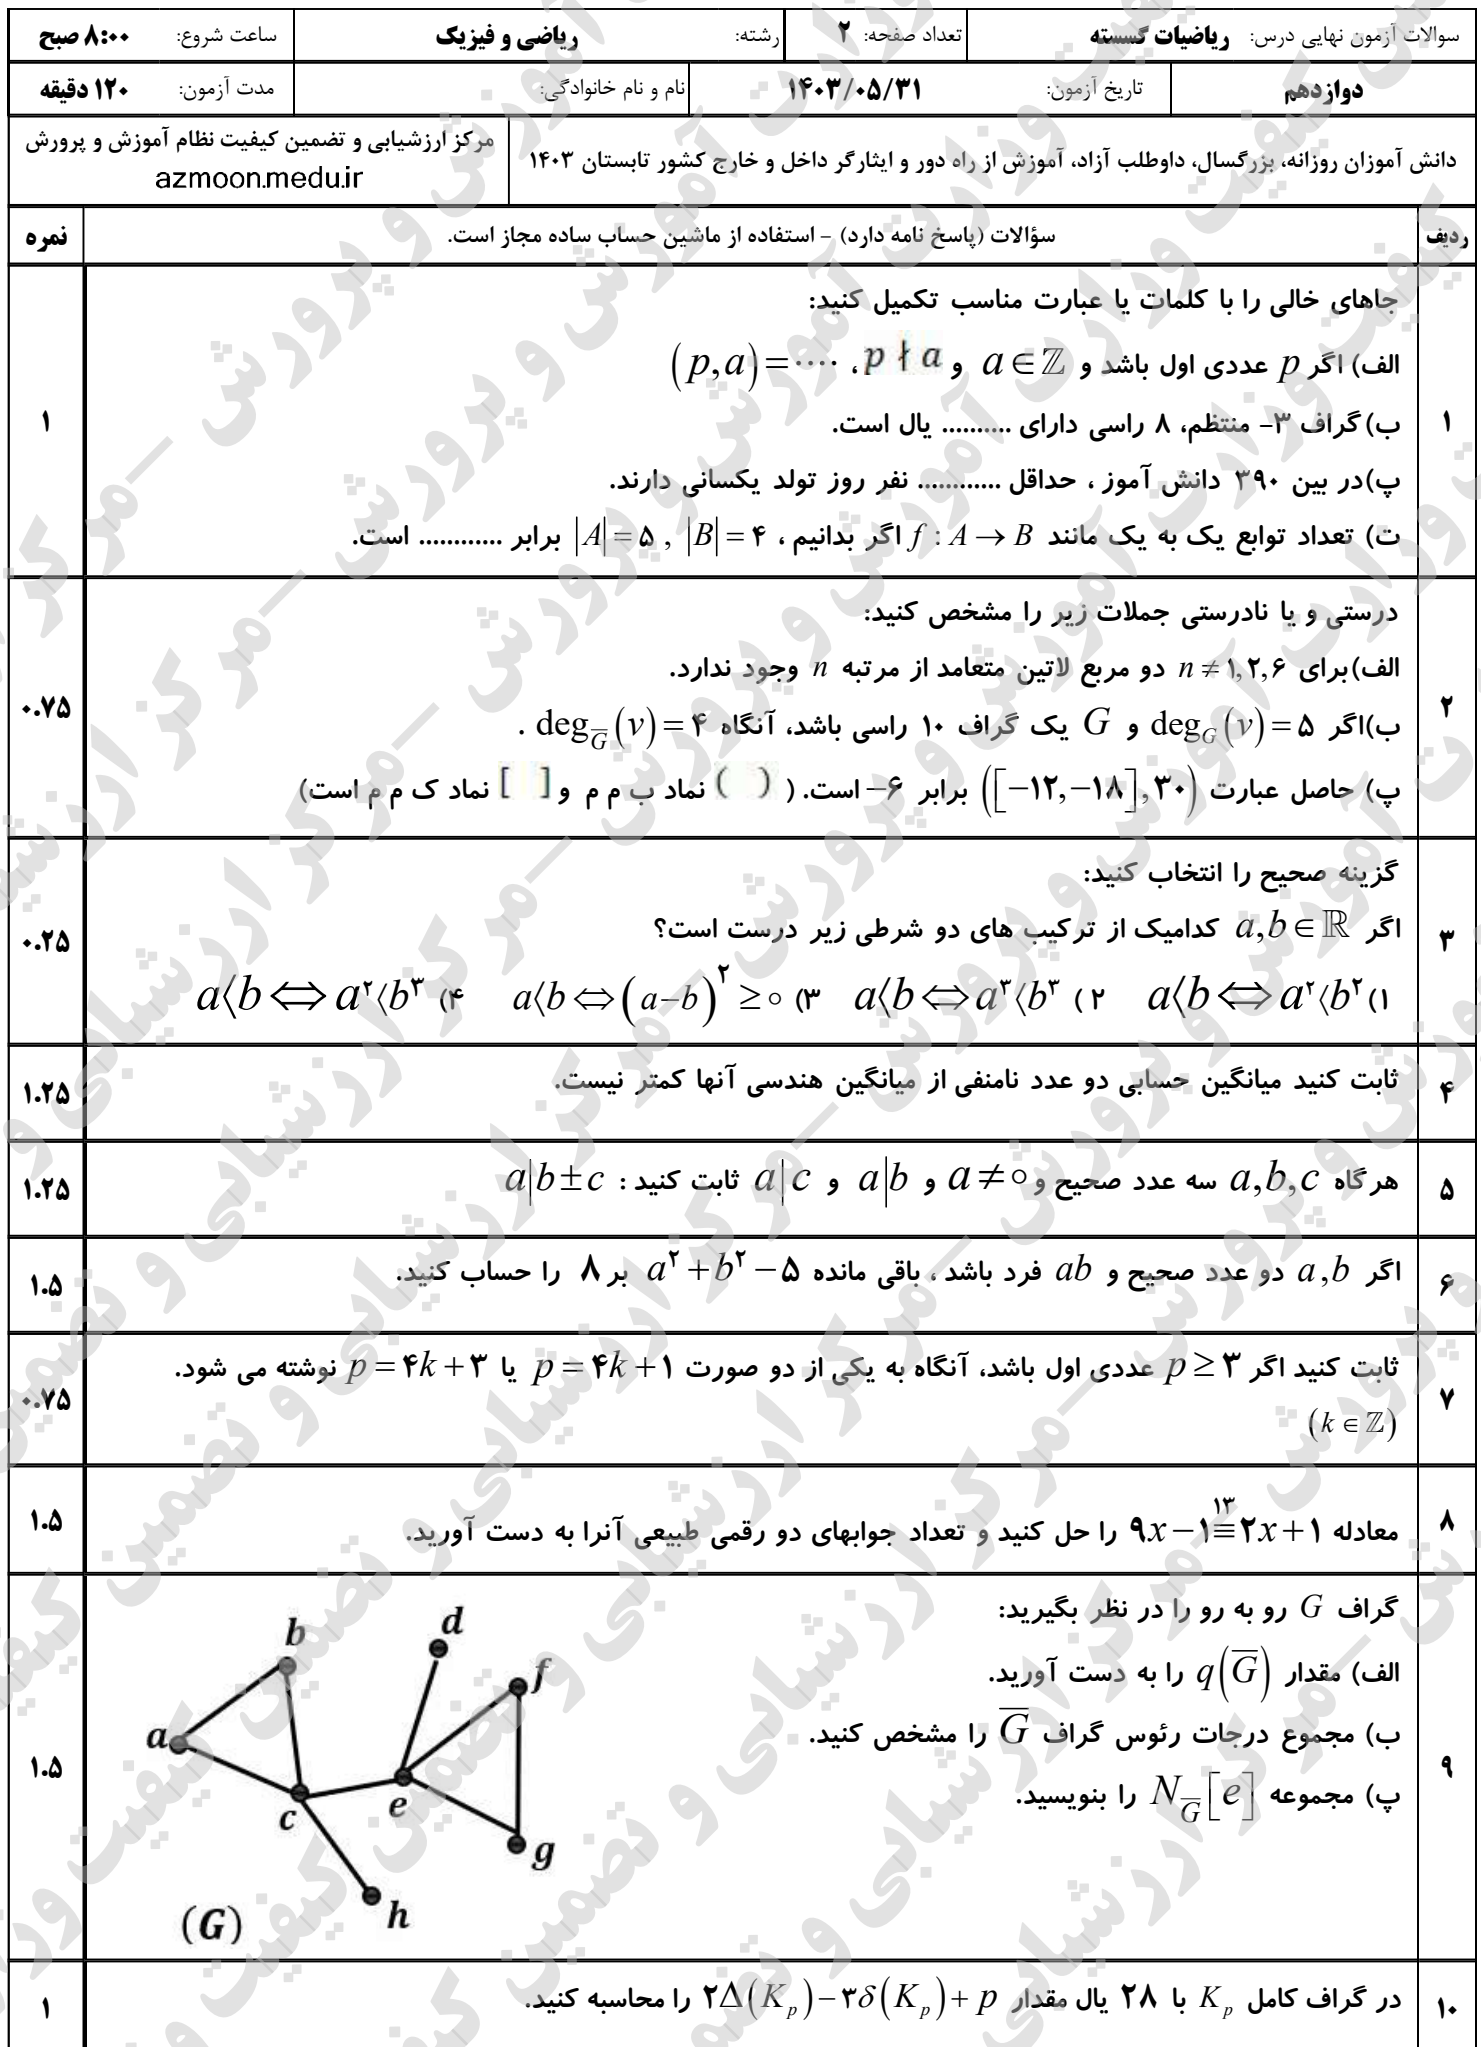 سوالات آزمون نهایی درس: ریاضیات گسسته تعداد صفحه: ۲ رشته: ریاضی و فیزیک ساعت شروع: ۸:۰۰ صبح
دوازدهم تاریخ آزمون: ۱۴۰۳/۰۵/۳۱ نام و نام خانوادگی: مدت آزمون: ۱۲۰ دقیقه
دانش آموزان روزانه، بزرگسال، داوطلب آزاد، آموزش از راه دور و ایثارگر داخل و خارج کشور تابستان ۱۴۰۳
مرکز ارزشیابی و تضمین کیفیت نظام آموزش و پرورش
azmoon.medu.ir
ردیف سؤالات (پاسخ نامه دارد) - استفاده از ماشین حساب ساده مجاز است. نمره
۱
جاهای خالی را با کلمات یا عبارت مناسب تکمیل کنید:
الف) اگر p عددی اول باشد و a∈ℤ و p ∤ a ، (p,a)=····
ب) گراف ۳- منتظم، ۸ راسی دارای .......... یال است.
پ)در بین ۳۹۰ دانش آموز ، حداقل ............ نفر روز تولد یکسانی دارند.
ت) تعداد توابع یک به یک مانند f : A → B اگر بدانیم ، |A|=۵ , |B|=۴ برابر ............ است.
۱
۲
درستی و یا نادرستی جملات زیر را مشخص کنید:
الف)برای n ≠ ۱,۲,۶ دو مربع لاتین متعامد از مرتبه n وجود ندارد.
ب)اگر deg_G(v)=۵ و G یک گراف ۱۰ راسی باشد، آنگاه deg_G̅(v)=۴ .
پ) حاصل عبارت ([−۱۲,−۱۸],۳۰) برابر ۶− است. ( ( ) نماد ب م م و [ ] نماد ک م م است)
۰.۷۵
۳
گزینه صحیح را انتخاب کنید:
اگر a,b∈ℝ کدامیک از ترکیب های دو شرطی زیر درست است؟
۱) a⟨b⇔a²⟨b² ۲) a⟨b⇔a³⟨b³ ۳) a⟨b⇔(a−b)²≥۰ ۴) a⟨b⇔a²⟨b³
۰.۲۵
۴
ثابت کنید میانگین حسابی دو عدد نامنفی از میانگین هندسی آنها کمتر نیست.
۱.۲۵
۵
هر گاه a,b,c سه عدد صحیح و a≠۰ و a|b و a|c ثابت کنید : a|b±c
۱.۲۵
۶
اگر a,b دو عدد صحیح و ab فرد باشد ، باقی مانده a²+b²−۵ بر ۸ را حساب کنید.
۱.۵
۷
ثابت کنید اگر p≥۳ عددی اول باشد، آنگاه به یکی از دو صورت p=۴k+۱ یا p=۴k+۳ نوشته می شود.
(k∈ℤ)
۰.۷۵
۸
معادله ۹x−۱≡۲x+۱ (۱۳) را حل کنید و تعداد جوابهای دو رقمی طبیعی آنرا به دست آورید.
۱.۵
۹
گراف G رو به رو را در نظر بگیرید:
الف) مقدار q(G̅) را به دست آورید.
ب) مجموع درجات رئوس گراف G̅ را مشخص کنید.
پ) مجموعه N_G̅[e] را بنویسید.
a b c d e f g h
(G)
۱.۵
۱۰
در گراف کامل K_p با ۲۸ یال مقدار ۲Δ(K_p)−۳δ(K_p)+p را محاسبه کنید.
۱